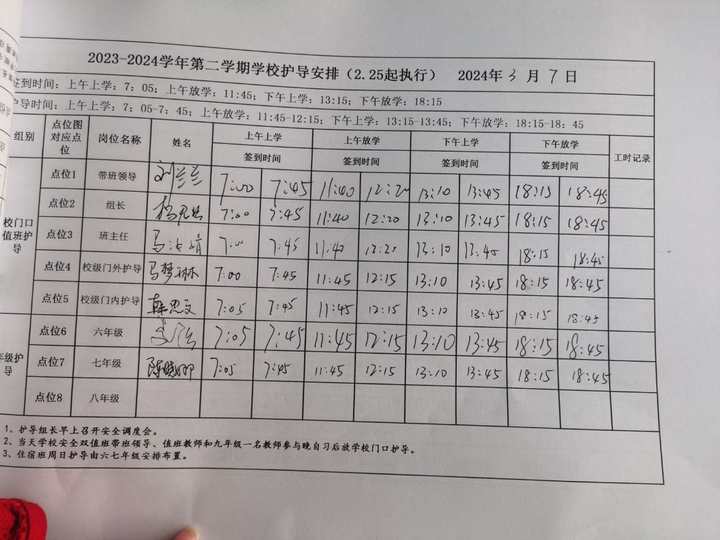 2023-2024学年第二学期学校护导安排（2.25起执行） 2024年3月7日
签到时间：上午上学：7：05；上午放学：11:45；下午上学：13:15；下午放学：18:15
护导时间：上午上学：7：05-7：45；上午放学：11:45-12:15；下午上学：13:15-13:45；下午放学：18:15-18：45
组别 点位图对应点位 岗位名称 姓名 上午上学 上午放学 下午上学 下午放学 工时记录
签到时间 签到时间 签到时间 签到时间
校门口值班护导
点位1 带班领导 刘兰兰 7:00 7:45 11:40 12:20 13:10 13:45 18:15 18:45
点位2 组长 7:00 7:45 11:40 12:20 13:10 13:45 18:15 18:45
点位3 班主任 7:00 7:45 11:40 12:20 13:10 13:45 18:15 18:45
点位4 校级门外护导 马梦琳 7:00 7:45 11:45 12:15 13:10 13:45 18:15 18:45
点位5 校级门内护导 韩思文 7:05 7:45 11:45 12:15 13:10 13:45 18:15 18:45
年级护导
点位6 六年级 7:05 7:45 11:45 12:15 13:10 13:45 18:15 18:45
点位7 七年级 7:05 7:45 11:45 12:15 13:10 13:45 18:15 18:45
点位8 八年级
1、护导组长早上召开安全调度会。
2、当天学校安全双值班带班领导、值班教师和九年级一名教师参与晚自习后放学校门口护导。
3、住宿班周日护导由六七年级安排布置。